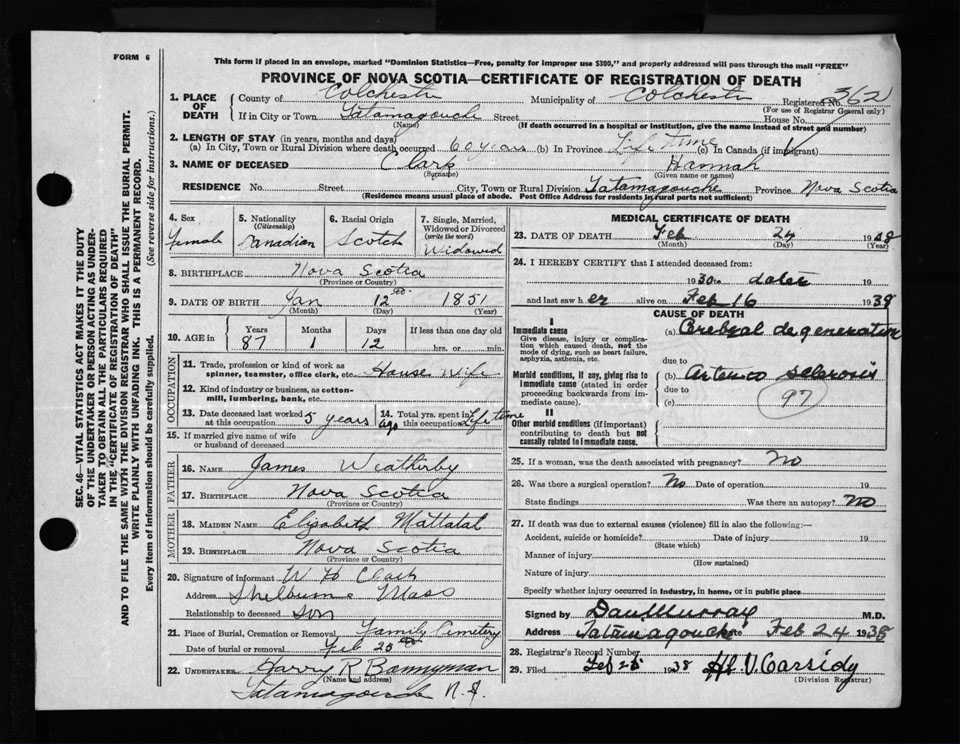 FORM 6
This form if placed in an envelope, marked "Dominion Statistics—Free, penalty for improper use $300," and properly addressed will pass through the mail "FREE"
PROVINCE OF NOVA SCOTIA—CERTIFICATE OF REGISTRATION OF DEATH
1. PLACE OF DEATH County of Colchester Municipality of Colchester Registered No. 362
(For use of Registrar General only)
If in City or Town Tatamagouche Street House No.
(Name) (If death occurred in a hospital or institution, give the name instead of street and number)
2. LENGTH OF STAY (in years, months and days)
(a) In City, Town or Rural Division where death occurred 60 years (b) In Province Life time (c) In Canada (if immigrant)
3. NAME OF DECEASED Clark Hannah
(Surname) (Given name or names)
RESIDENCE No. Street City, Town or Rural Division Tatamagouche Province Nova Scotia
(Residence means usual place of abode. Post Office Address for residents in rural parts not sufficient)
4. Sex 5. Nationality (Citizenship) 6. Racial Origin 7. Single, Married, Widowed or Divorced (write the word)
female Canadian Scotch Widowed
8. BIRTHPLACE Nova Scotia
(Province or Country)
9. DATE OF BIRTH Jan 12 1851
(Month) (Day) (Year)
10. AGE in Years Months Days If less than one day old
87 1 12 hrs. or min.
OCCUPATION
11. Trade, profession or kind of work as spinner, teamster, office clerk, etc. House Wife
12. Kind of industry or business, as cotton-mill, lumbering, bank, etc.
13. Date deceased last worked at this occupation 5 years ago 14. Total yrs. spent in this occupation Life time
15. If married give name of wife or husband of deceased
FATHER
16. NAME James Weatherby
17. BIRTHPLACE Nova Scotia
(Province or Country)
MOTHER
18. MAIDEN NAME Elizabeth Mattatal
19. BIRTHPLACE Nova Scotia
(Province or Country)
20. Signature of informant W H Clark
Address Shelburne Mass
Relationship to deceased Son
21. Place of Burial, Cremation or Removal Family Cemetery
Date of burial or removal Feb 25
22. UNDERTAKER Harry R Bonnyman
(Name and address)
Tatamagouche N.S.
MEDICAL CERTIFICATE OF DEATH
23. DATE OF DEATH Feb 24 1938
(Month) (Day) (Year)
24. I HEREBY CERTIFY that I attended deceased from:
1930 to date 19
and last saw her alive on Feb 16 1938
CAUSE OF DEATH
I
Immediate cause (a) Cerebral degeneration
Give disease, injury or complication which caused death, not the mode of dying, such as heart failure, asphyxia, asthenia, etc.
due to
Morbid conditions, if any, giving rise to immediate cause (stated in order proceeding backwards from immediate cause). (b) Arterio sclerosis
due to
(c) 97
II
Other morbid conditions (if important) contributing to death but not causally related to immediate cause.
25. If a woman, was the death associated with pregnancy? No
26. Was there a surgical operation? No Date of operation 19
State findings Was there an autopsy? No
27. If death was due to external causes (violence) fill in also the following:—
Accident, suicide or homicide? Date of injury 19
(State which)
Manner of injury
(How sustained)
Nature of injury
Specify whether injury occurred in industry, in home, or in public place
Signed by Dan Murray M.D.
Address Tatamagouche Date Feb 24 1938
28. Registrar's Record Number
29. Filed Feb 25 1938 Cassidy
(Division Registrar)
SEC. 46—VITAL STATISTICS ACT MAKES IT THE DUTY
OF THE UNDERTAKER OR PERSON ACTING AS UNDER-
TAKER TO OBTAIN ALL THE PARTICULARS REQUIRED
IN THE "CERTIFICATE OF REGISTRATION OF DEATH"
AND TO FILE THE SAME WITH THE DIVISION REGISTRAR WHO SHALL ISSUE THE BURIAL PERMIT.
WRITE PLAINLY WITH UNFADING INK. THIS IS A PERMANENT RECORD.
Every item of information should be carefully supplied. (See reverse side for instructions.)